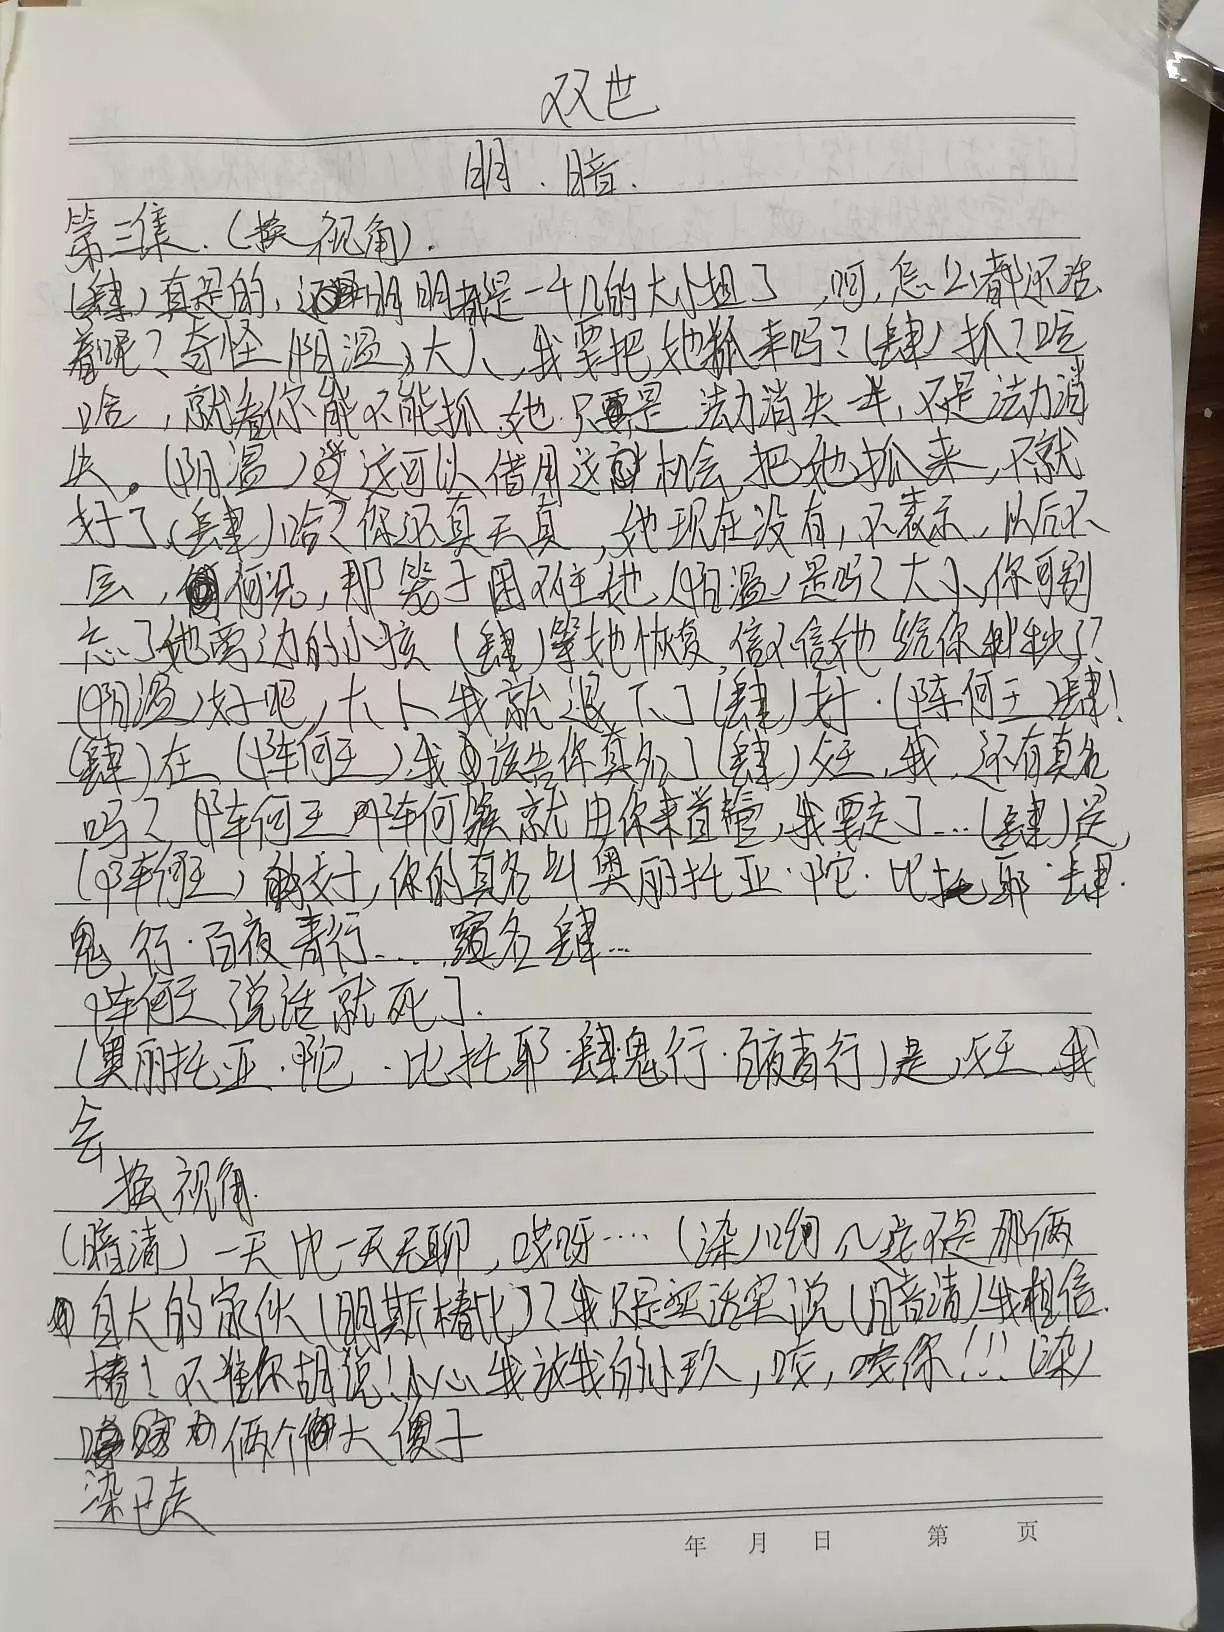 双世
明.暗.
第三集.(换视角).
(肆)真是的,还明明都是一千几的大小姐了,呵,怎么都还活
着呢?奇怪(阴温)大人,我要把她抓来吗?(肆)抓?哈
哈,就看你能不能抓,她只是法力消失一半,不是法力消
失.(阴温)这可以借用这机会把她抓来,不就
好了(肆)哈?你还真天真,她现在没有,不表示,以后不
会,何况,那笼子困不住她(阴温)是吗?大人,你可别
忘了她旁边的小孩(肆)等她恢复,信不信她给你秒了?
(阴温)好吧,大人我就退下了(肆)好.(阵何王)肆!
(肆)在(阵何王)我该告你真名了(肆)父王,我,还有真名
吗?(阵何王)阵何族就由你来管,我要走了...(肆)是,
(阵何王)好,你的真名叫奥丽托亚.陀.比托耶.肆.
鬼行.百夜青行....名肆...
阵何王说话就死了.
(奥丽托亚.陀.比托耶.肆.鬼行.百夜青行)是,父王,我
会
换视角.
(暗清)一天比一天无聊,哎呀....(染)哟~这不是那俩
自大的家伙(明斯椿比)?我只是实话实说(暗清)我相信
椿!不准你胡说!小心我放我的小玖,咬,咬你!!!(染)
俩个大傻子
染已走
年 月 日 第 页